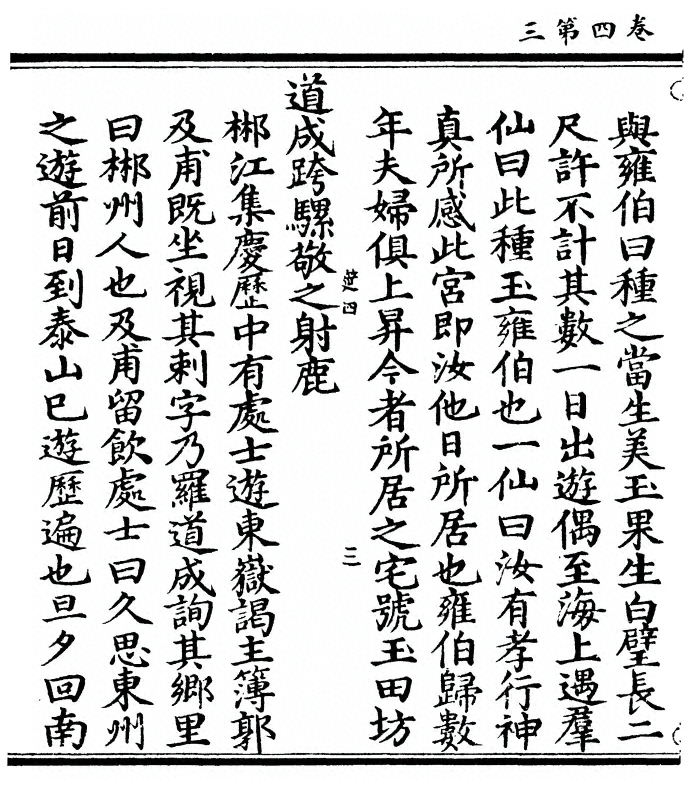 三第四卷
與雍伯曰種之當生美玉果生白璧長二
尺許不計其數一日出遊偶至海上遇羣
仙曰此種玉雍伯也一仙曰汝有孝行神
真所感此宮即汝他日所居也雍伯歸數
年夫婦俱上昇今者所居之宅號玉田坊
三
道成跨騾敬之射鹿
郴江集慶歷中有處士遊東嶽謁主簿郭
及甫既坐視其刺字乃羅道成詢其鄉里
曰郴州人也及甫留飲處士曰久思東州
之遊前日到泰山巳遊歷遍也旦夕回南